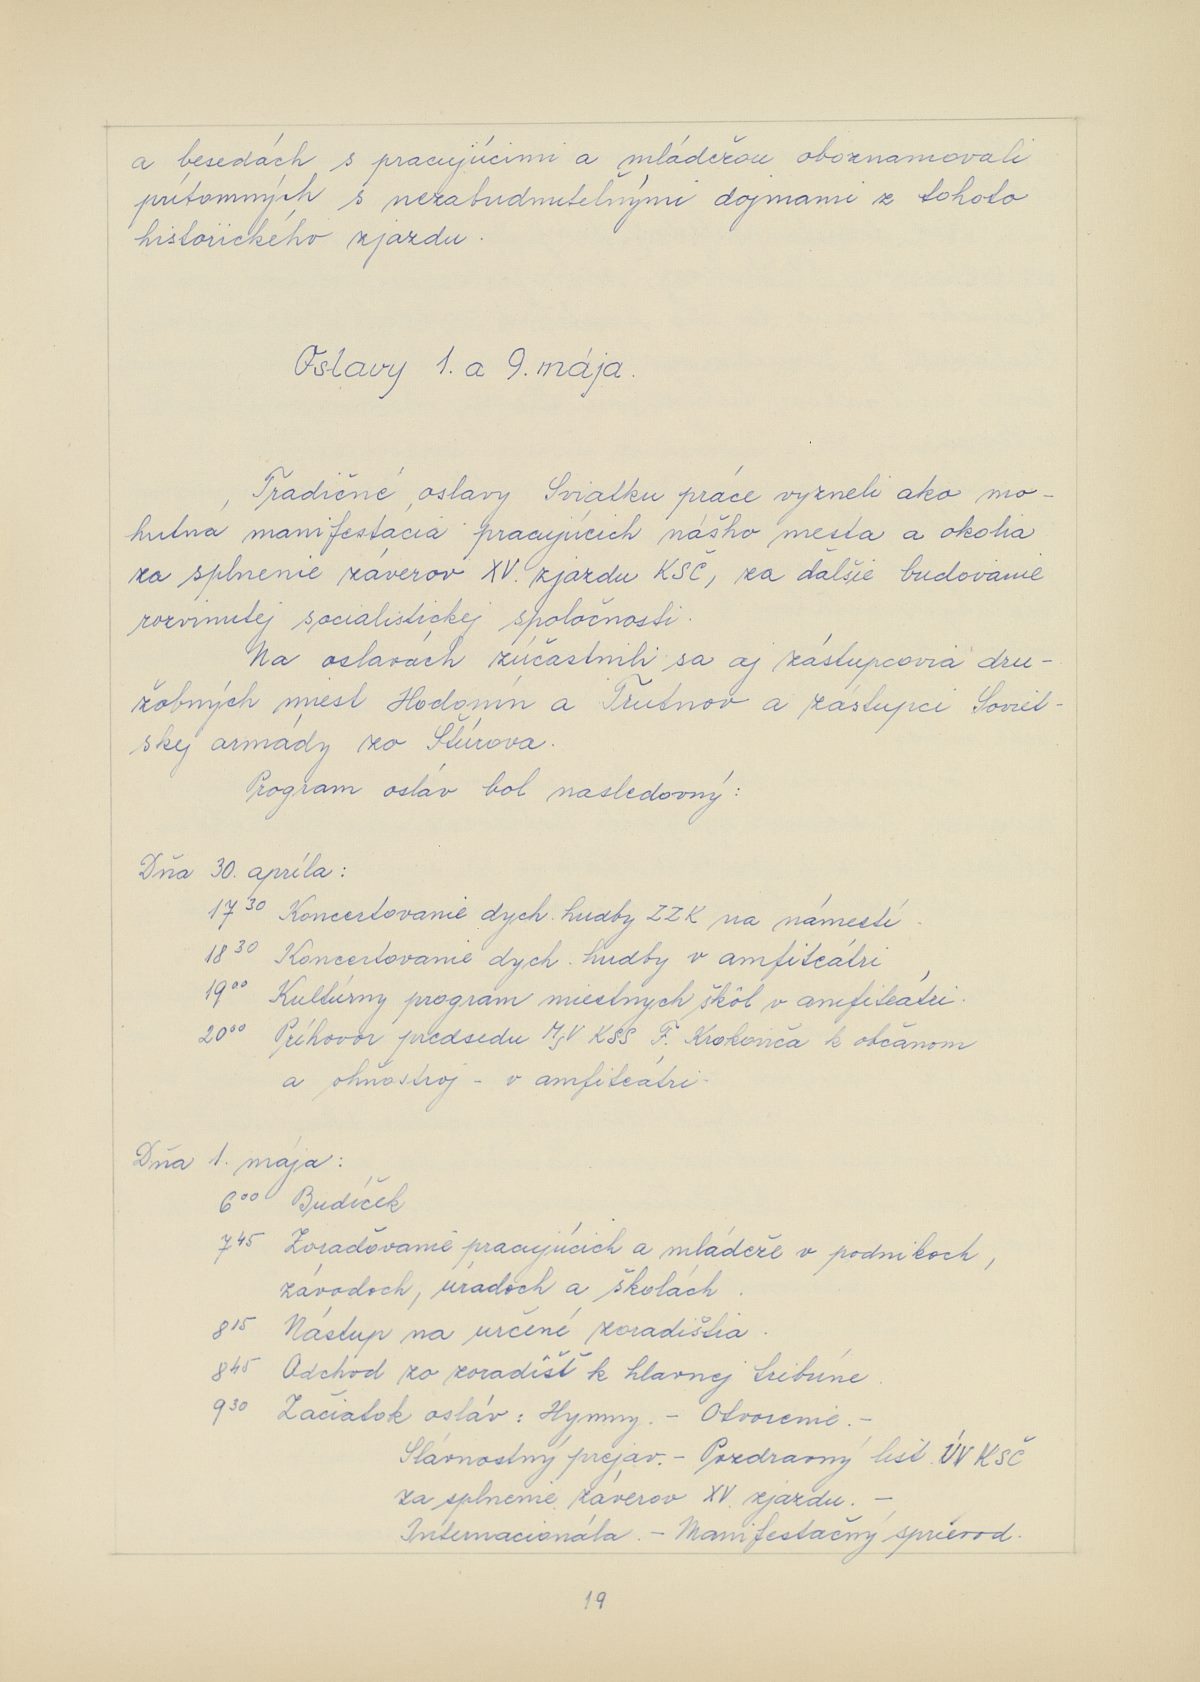 a besedách s pracujúcimi a mládežou oboznamovali
prítomných s nezabudnuteľnými dojmami z tohoto
historického zjazdu.
Oslavy 1. a 9. mája.
Tradičné oslavy Sviatku práce vyzneli ako mo-
hutná manifestácia pracujúcich nášho mesta a okolia
za splnenie záverov XV. zjazdu KSČ, za ďalšie budovanie
rozvinutej socialistickej spoločnosti.
Na oslavách zúčastnili sa aj zástupcovia dru-
žobných miest Hodonín a Trutnov a zástupci Soviet-
skej armády zo Štúrova.
Program osláv bol nasledovný:
Dňa 30. apríla:
17 30 Koncertovanie dych. hudby ZZK na námestí.
18 30 Koncertovanie dych. hudby v amfiteátri
19 00 Kultúrny program miestnych škôl v amfiteátri.
20 00 Príhovor predsedu MsV KSS F. Krokoviča k občanom
a ohňostroj - v amfiteátri.
Dňa 1. mája:
6 00 Budíček
7 45 Zoraďovanie pracujúcich a mládeže v podnikoch,
závodoch, úradoch a školách.
8 15 Nástup na určené zoradištia.
8 45 Odchod zo zoradíšť k hlavnej tribúne.
9 30 Začiatok osláv: Hymny. - Otvorenie. -
Slávnostný prejav. - Pozdravný list ÚV KSČ
za splnenie záverov XV. zjazdu. -
Internacionála. - Manifestačný sprievod.
19